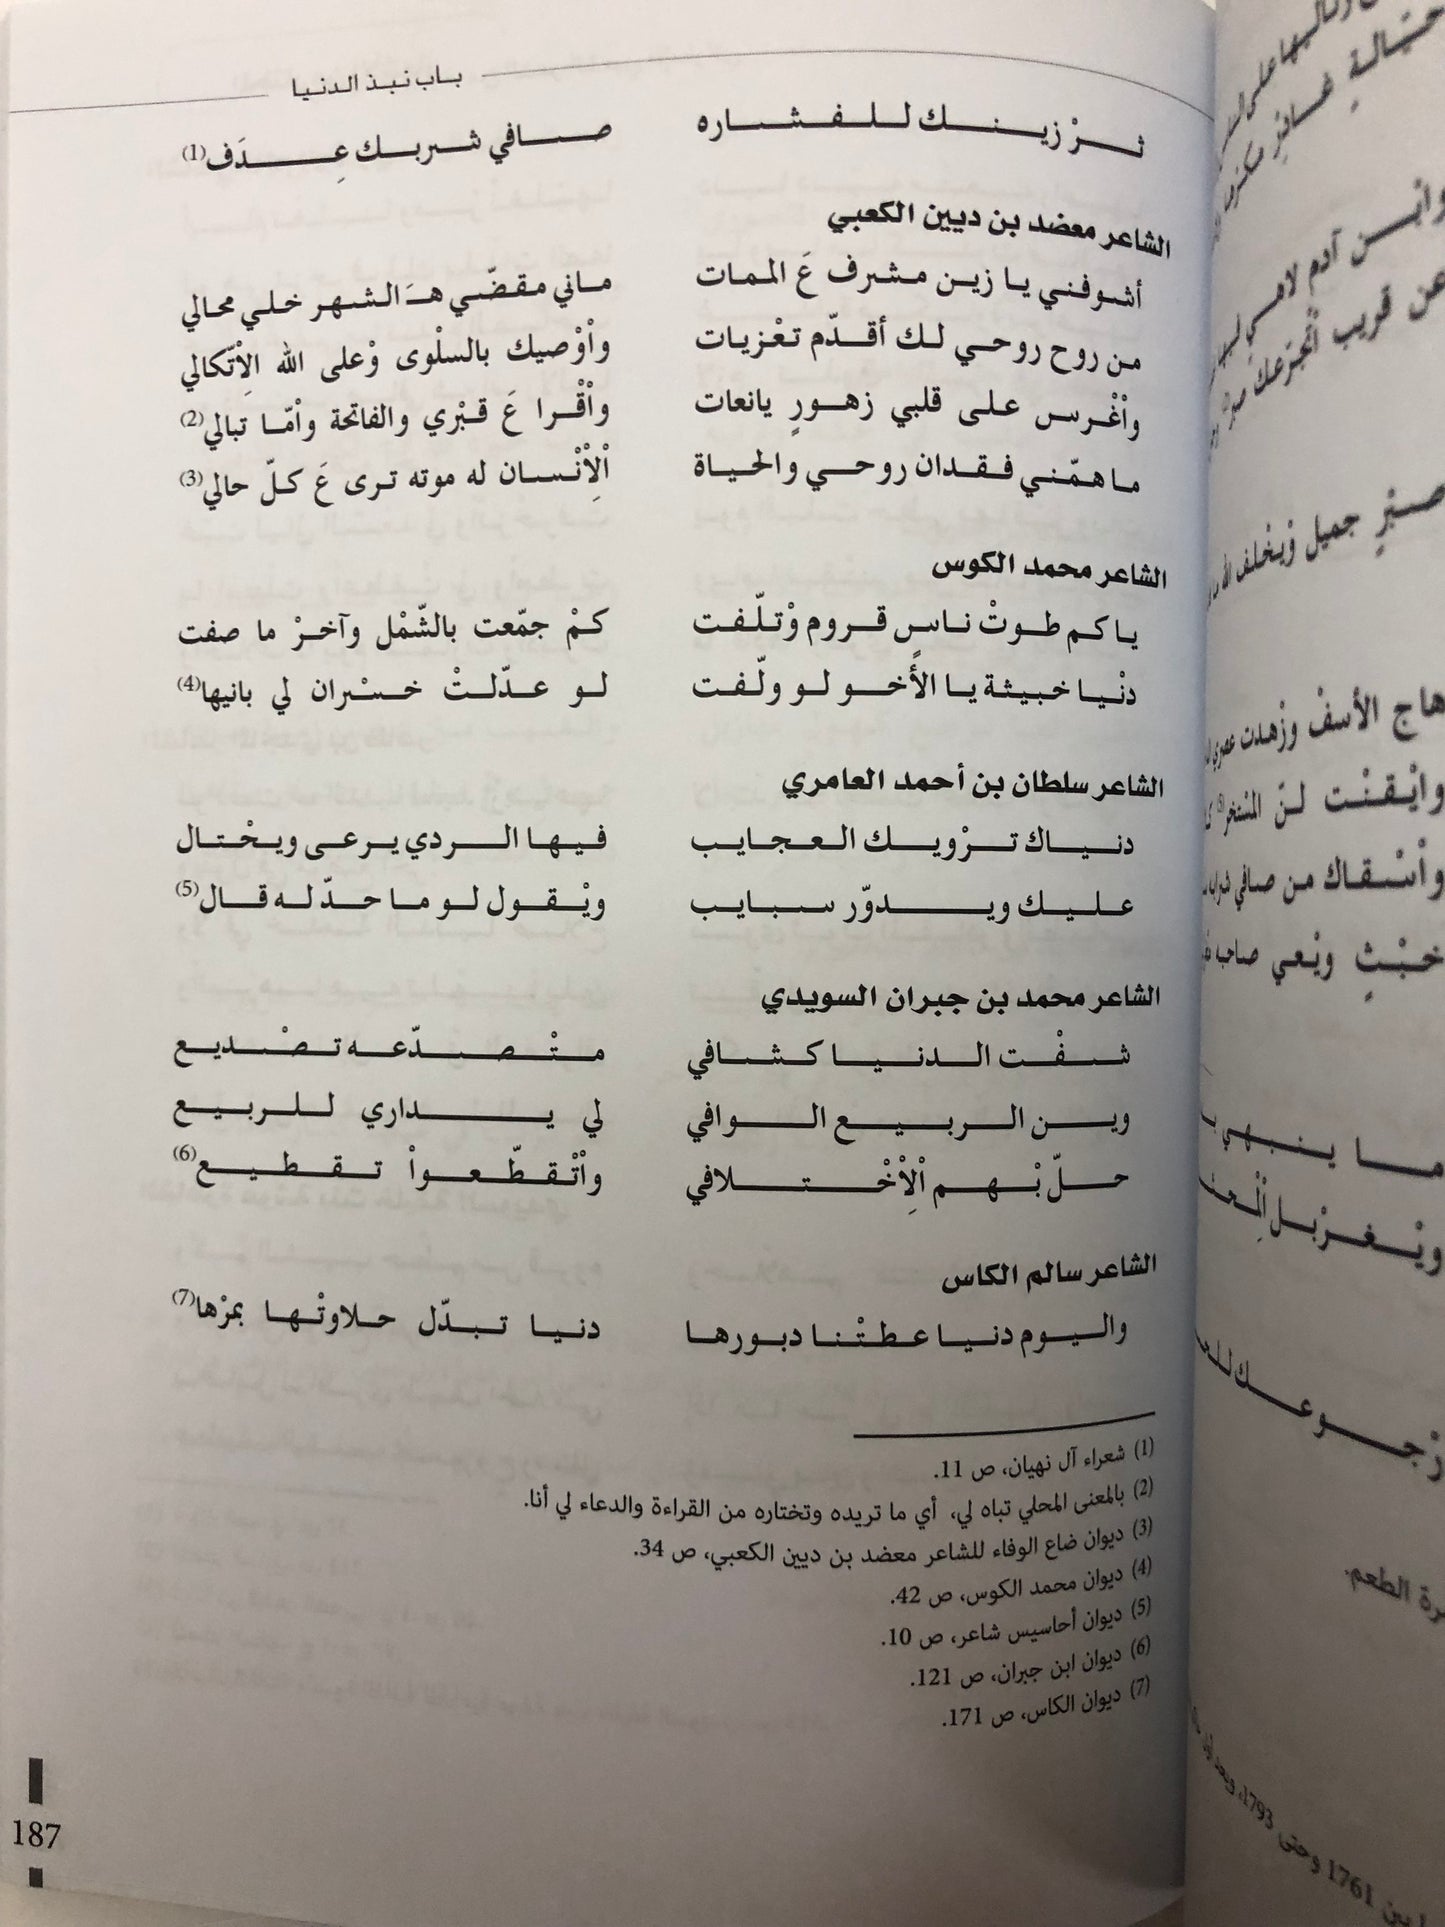 باب نبذ الدنيا
ثـرْ زيـنـك للـفـشاره صـافي شربـك عِـدَف(1)
الشاعر معضد بن ديين الكعبي
أشوفني يا زين مشرف عَ الممات ماني مقضّي هـَ الشهر خلي محالي
من روح روحي لك أقدّم تعْزيات واْوْصيك بالسلْوى وْعلى الله الاِتّكالي
واْغْرس على قلبي زهورٍ يانعات واْقْرا عَ قبْري والفاتحة واْمّا تبالي(2)
ما همّني فقدان روحي والحياة اْلاِنْسان له موته ترى عَ كلّ حالي(3)
الشاعر محمد الكوس
يا كم طوتْ ناسٍ قروم وْتلّفت كمْ جمّعت بالشّمْل وآخرْ ما صفت
دنْيا خبيثة يا الأخو لو ولّفت لو عدّلتْ خسْران لي بانيها(4)
الشاعر سلطان بن أحمد العامري
دنياك ترْويك العجايب فيها الردي يرعى ويخْتال
عليك ويدوّر سبايب ويْقول لو ما حدّ له قال(5)
الشاعر محمد بن جبران السويدي
شفْت الدنيا كشافي متْصدّعه تصْديع
وين الربيع الوافي لي يداري للربيع
حلّ بْهم اْلاِخْتلافي واْتْقطّعواْ تقطيع(6)
الشاعر سالم الكاس
واليوم دنيا عطتْنا دبورها دنيا تبدّل حلاوتْها بمرْها(7)
(1) شعراء آل نهيان، ص 11.
(2) بالمعنى المحلي تباه لي، أي ما تريده وتختاره من القراءة والدعاء لي أنا.
(3) ديوان ضاع الوفاء للشاعر معضد بن ديين الكعبي، ص 34.
(4) ديوان محمد الكوس، ص 42.
(5) ديوان أحاسيس شاعر، ص 10.
(6) ديوان ابن جبران، ص 121.
(7) ديوان الكاس، ص 171.
187
وابْن آدم لاهي
عن قريب
صبْرٍ جميل وْيخْلف الله
هاج الأسفْ وزْهدت عصري
وايْقنْت لنّ المسْتخر
واْسْقاك من صافي
خبْثٍ ويْعي صاحبه
ما ينبهي
ويْغرْبل
رْجوعك
الطعم.
1761 وحتى 1793،